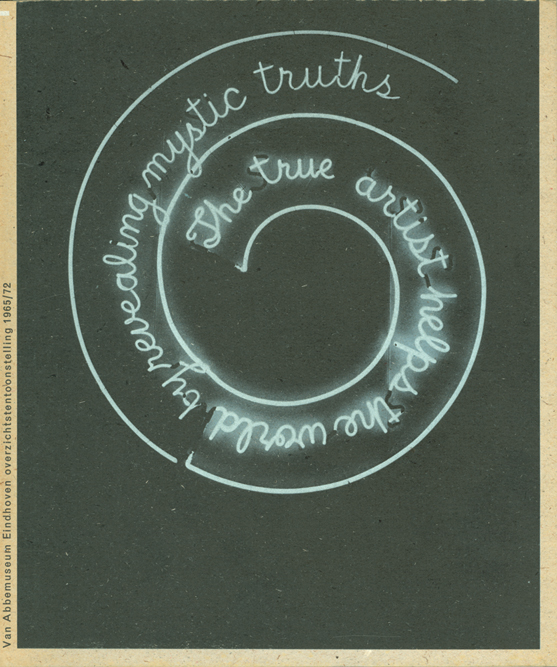 The true artist helps the world by revealing mystic truths
Van Abbemuseum Eindhoven overzichtstentoonstelling 1965/72